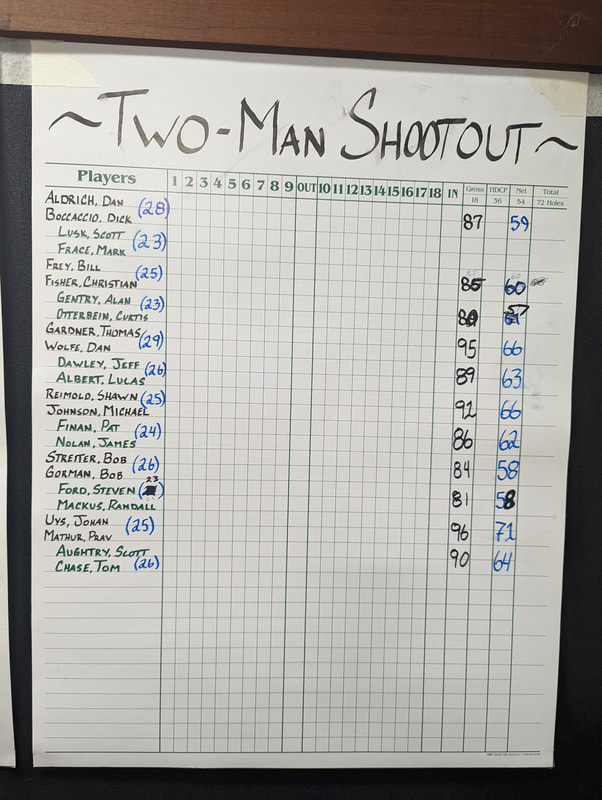 ~TWO-MAN SHOOTOUT~
Players 1 2 3 4 5 6 7 8 9 OUT 10 11 12 13 14 15 16 17 18 IN Gross HDCP Net Total
18 36 54 72 Holes
ALDRICH, DAN
BOCCACCIO, DICK (28) 87 59
LUSK, SCOTT
FRACE, MARK (23)
FREY, BILL
FISHER, CHRISTIAN (25) 85 60
GENTRY, ALAN
OTTERBEIN, CURTIS (23) 80 57
GARDNER, THOMAS
WOLFE, DAN (29) 95 66
DAWLEY, JEFF
ALBERT, LUCAS (26) 89 63
REIMOLD, SHAWN
JOHNSON, MICHAEL (25) 92 66
FINAN, PAT
NOLAN, JAMES (24) 86 62
STREITER, BOB
GORMAN, BOB (26) 84 58
FORD, STEVEN
MACKUS, RANDALL 23 81 58
UYS, JOHAN
MATHUR, PRAV (25) 96 71
AUGHTRY, SCOTT
CHASE, TOM (26) 90 64